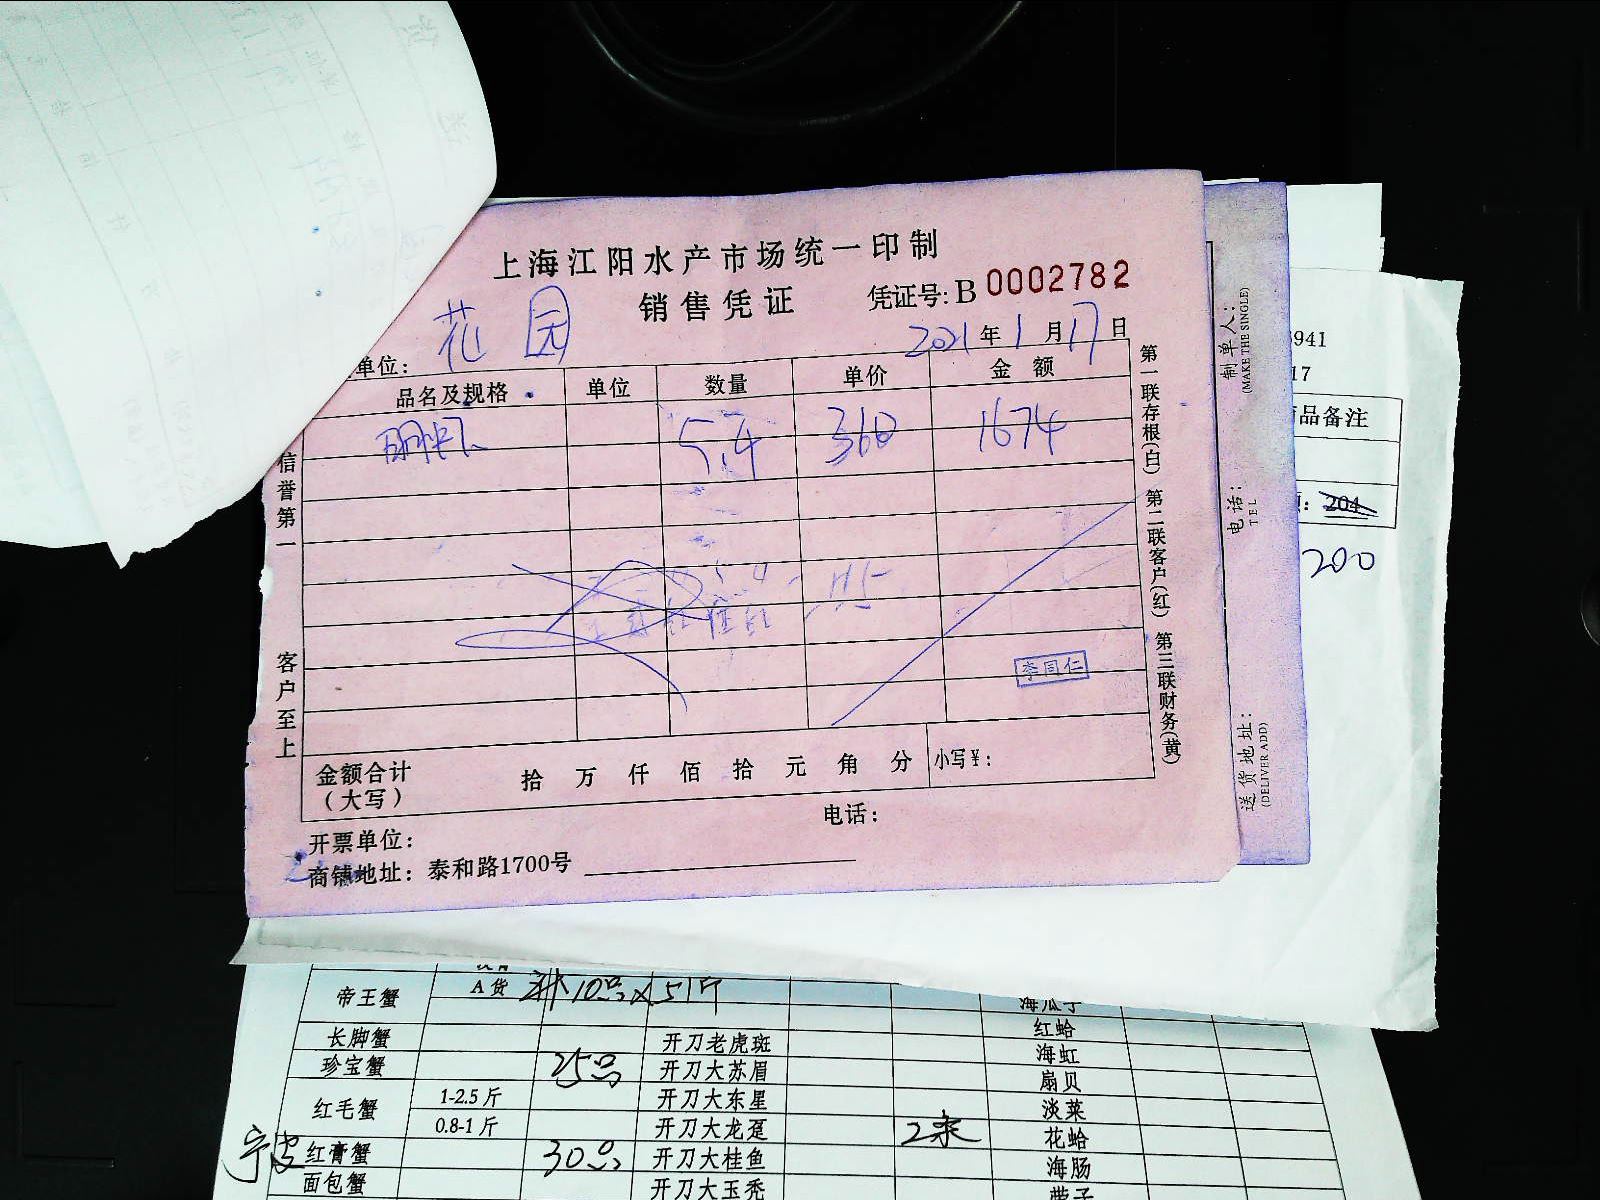 上海江阳水产市场统一印制
销售凭证 凭证号: B 0002782
单位: 花园 2021年1月17日
品名及规格 单位 数量 单价 金额
5.4 360 1674
信誉第一
客户至上
李同仁
金额合计(大写) 拾 万 仟 佰 拾 元 角 分 小写¥:
电话:
开票单位:
商铺地址: 泰和路1700号
第一联存根(白) 第二联客户(红) 第三联财务(黄)
制单人:
(MAKE THE SINGLE)
电话:
TEL
送货地址:
(DELIVER ADD)
941
17
品备注
204
200
帝王蟹 A货 10只×5斤 海瓜子
红蛤
长脚蟹 开刀老虎斑 海虹
珍宝蟹 25只 开刀大苏眉 扇贝
红毛蟹 1-2.5斤 开刀大东星 淡菜
0.8-1斤 开刀大龙趸 花蛤
宁波 红膏蟹 30只 开刀大桂鱼 海肠
面包蟹 开刀大玉秃 带子